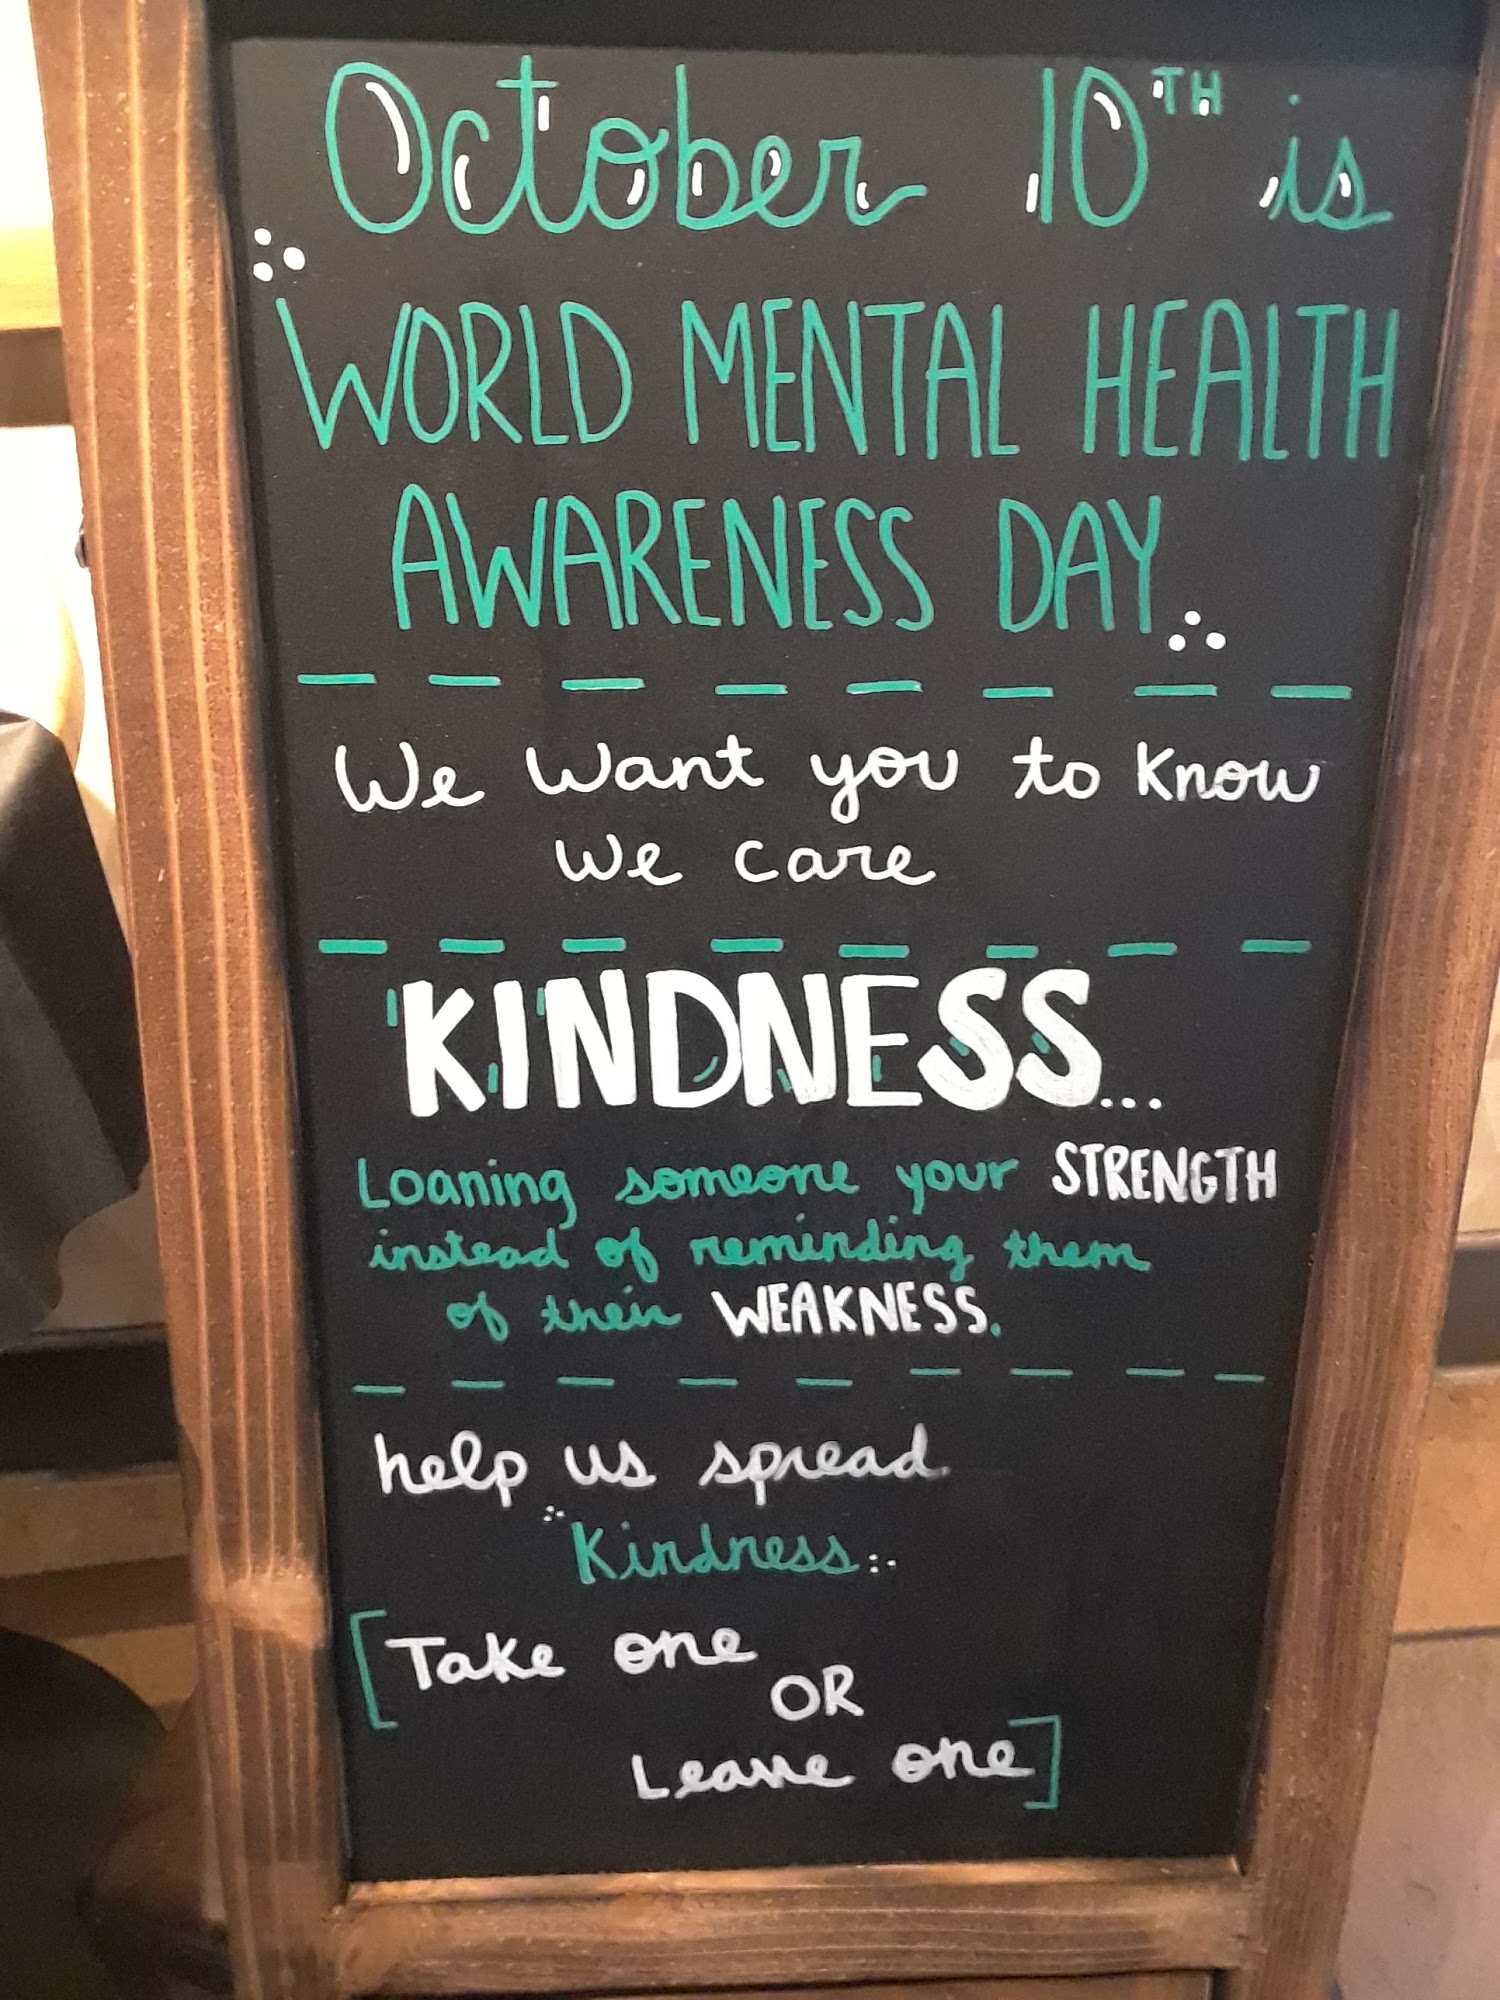 October 10TH is
WORLD MENTAL HEALTH
AWARENESS DAY
We want you to know
we care
KINDNESS...
Loaning someone your STRENGTH
instead of reminding them
of their WEAKNESS.
help us spread
Kindness
[Take one
OR
Leave one]